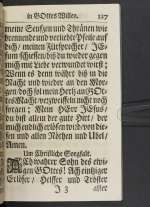 in GOttes Willen. 127
meine Seufzer und Thränen wie
brennende und verliebte Pfeile auff
dich/ meinen Fürsprecher/ JE-
sum schiessen/ biß du wieder gegen
mich mit Liebe verwundet wirst;
Wenn es denn währt biß in die
Nacht und wieder an den Mor-
gen/ doch sol mein Hertz an GOt-
tes Macht verzweiffeln nicht noch
sorgen; Mein HErr JEsus/
du bist allein der gute Hirt/ der
mich endlich erlösen wird von die-
sen und allen Nöthen und Ubel/
Amen.
Um Christliche Sorgfalt.
ACh wahrer Sohn des ewi-
gen GOttes! Ach einziger
Erlöser/ Helffer und Tröster
J 3 aller